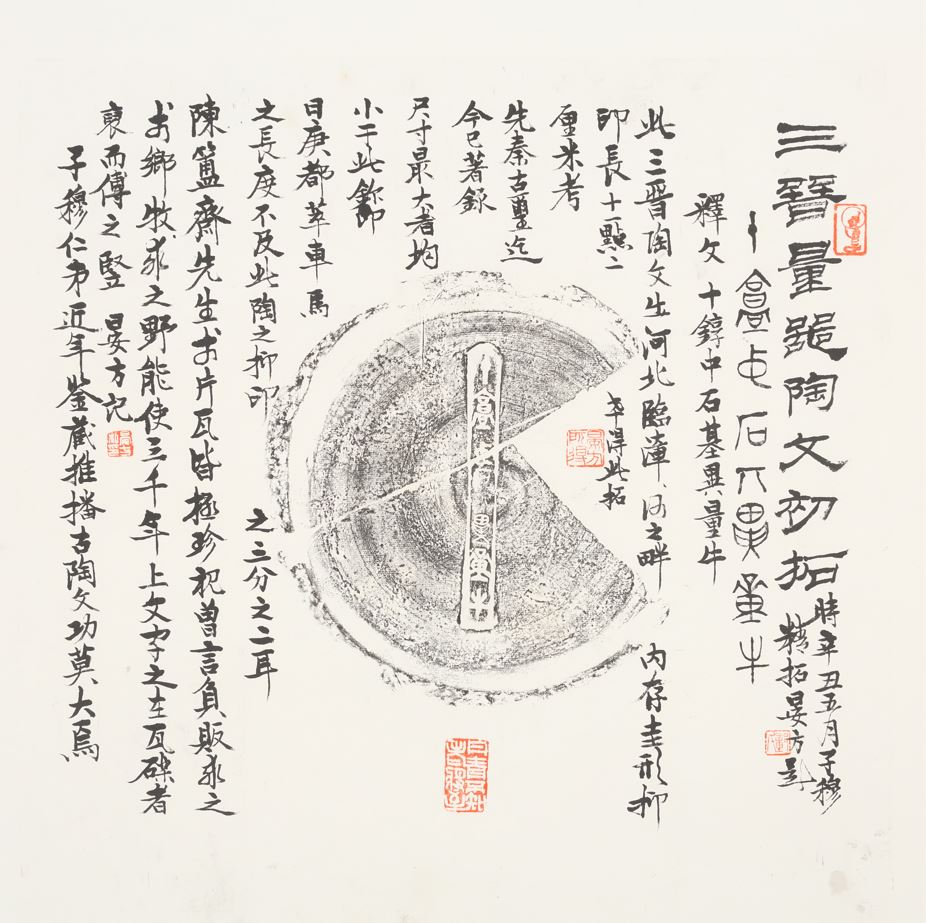 三晉量陶文初拓
時辛丑五月子穆
精拓晏方題
中石丌異量牛
釋文 十錞中石基異量牛
此三晉陶文出河北臨漳、河之畔 內存圭形抑
印長十一點二
厘米考
先秦古璽迄
今已著錄
尺寸最大者均
小于此鉨印
日庚都萃車馬
之長度不及此陶之抑印
之三分之二耳
陳簠齋先生於片瓦皆極珍祀曾言負販求之
於鄉牧求之野能使三千年上文字之在瓦礫者
裒而傳之 晏方記
子穆仁弟近年鑒藏推播古陶文功莫大焉
得此拓